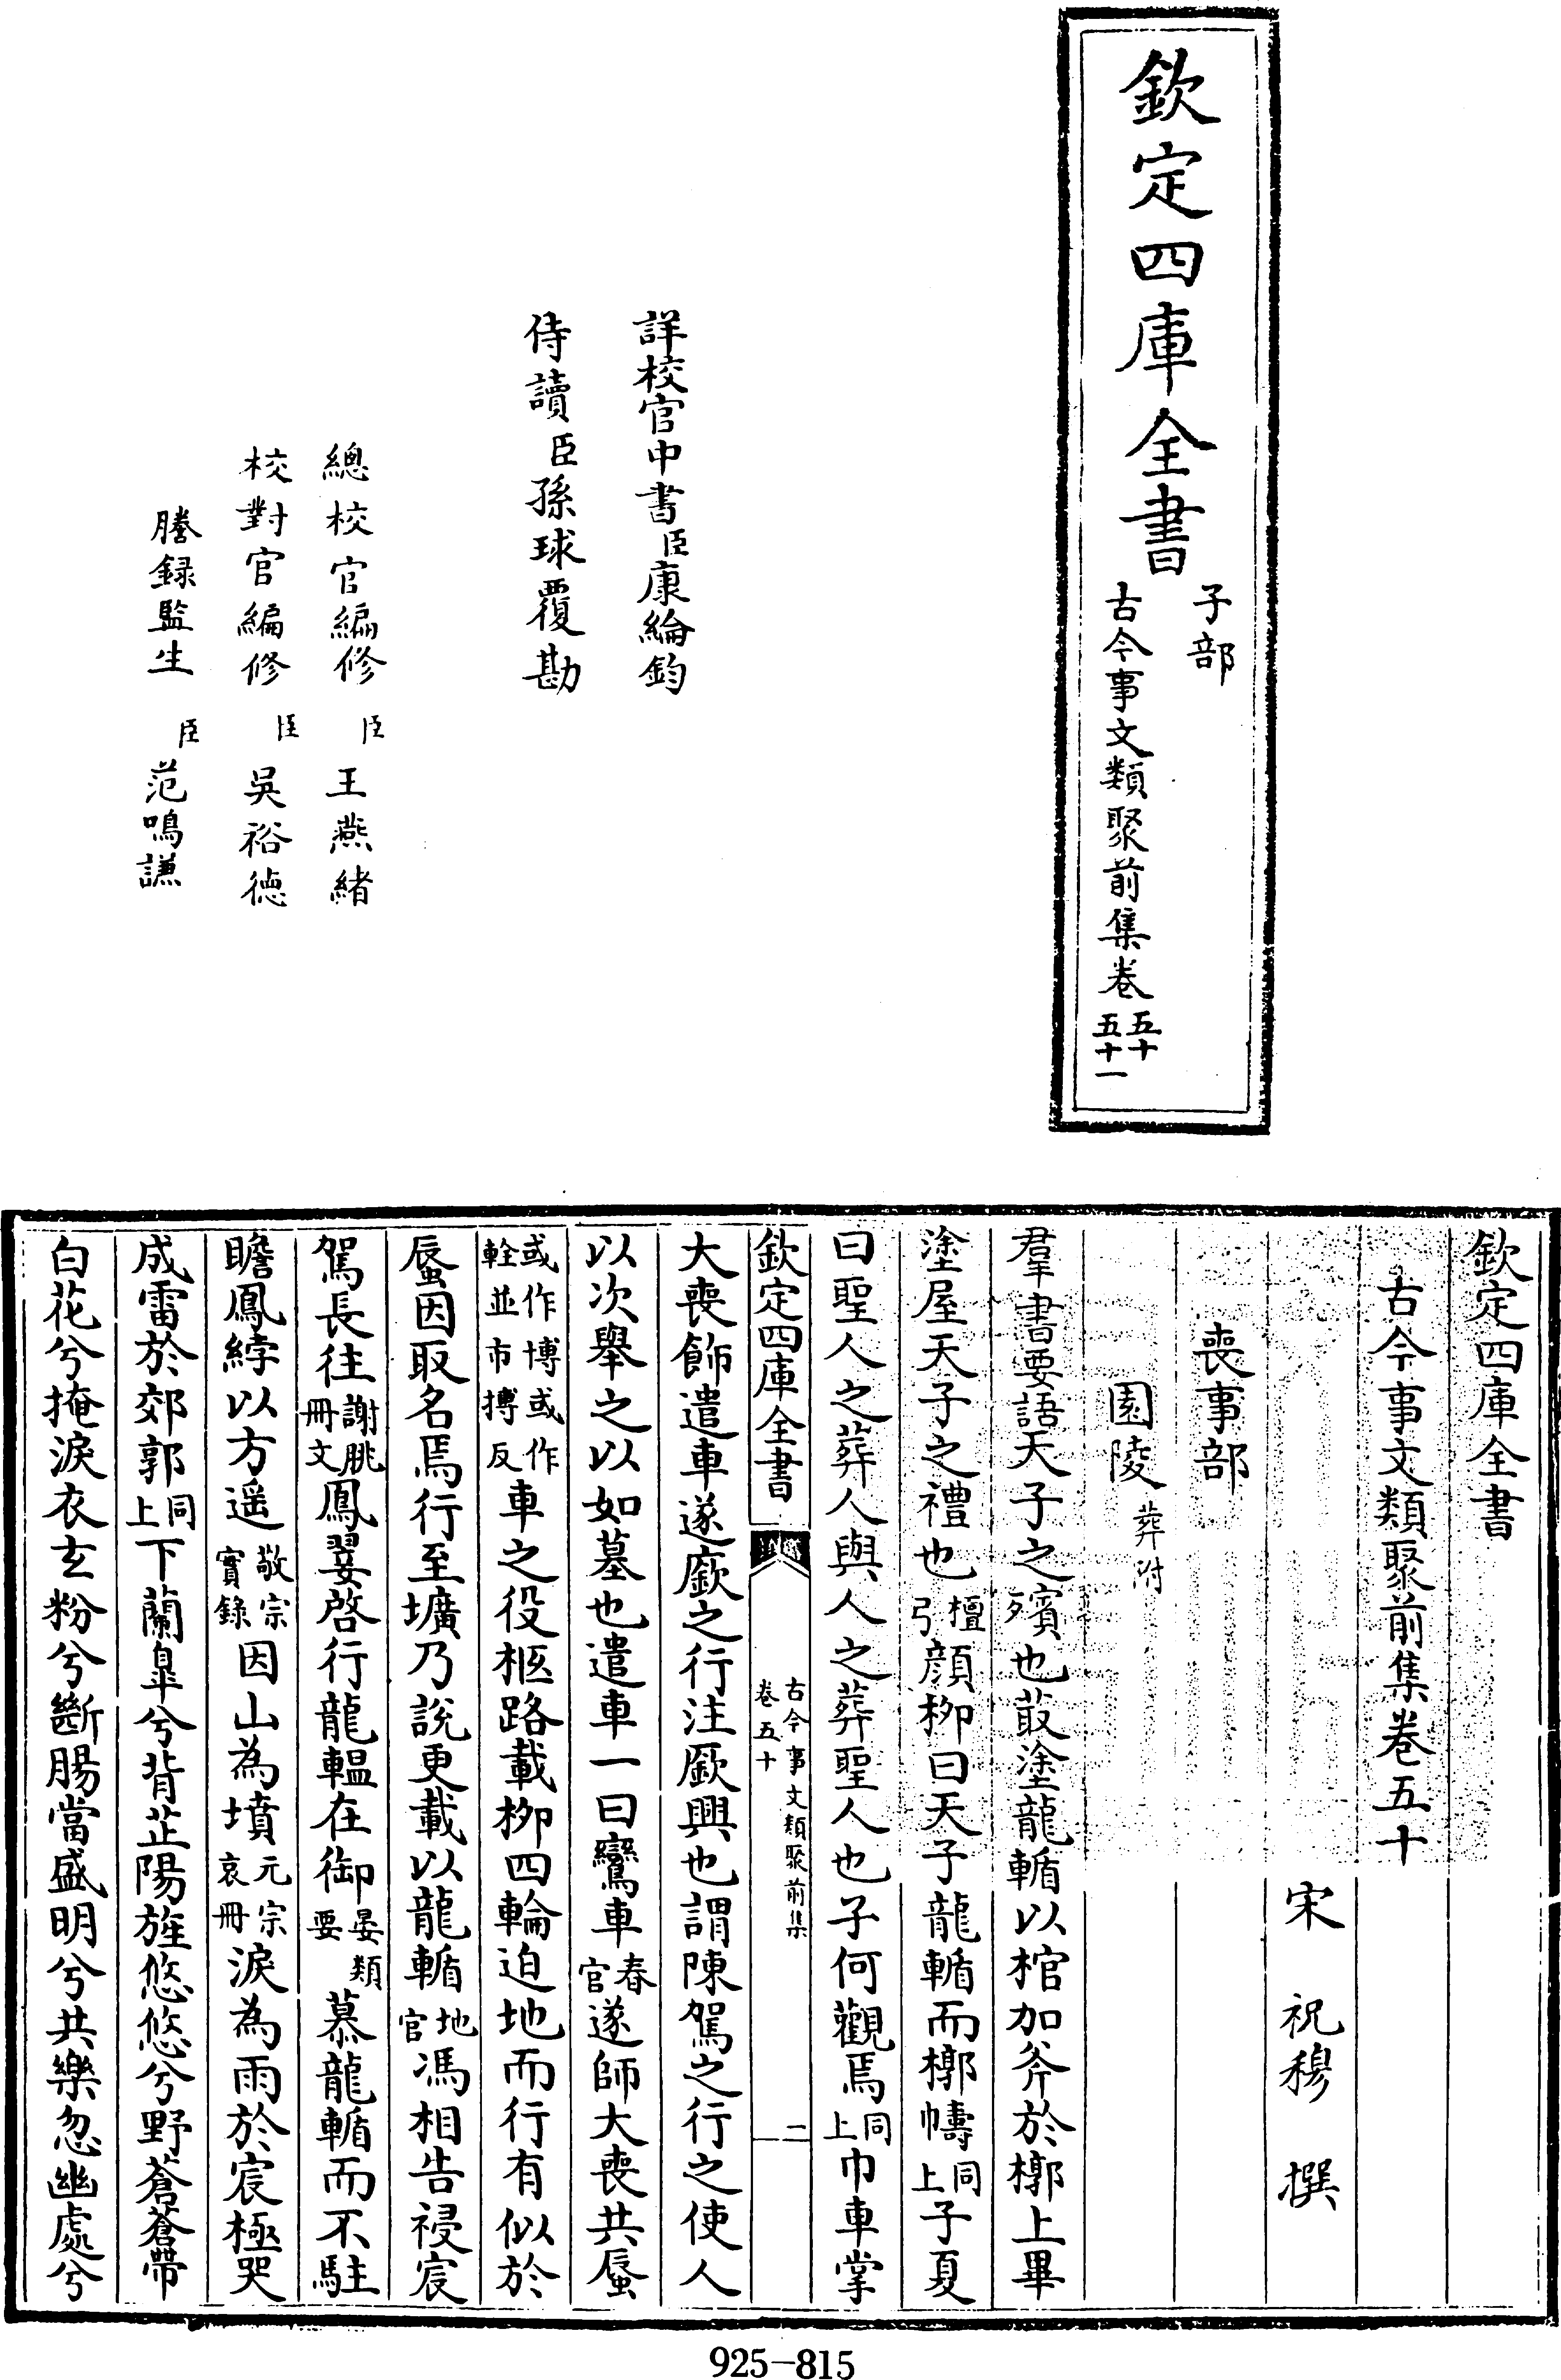 欽定四庫全書
子部
古今事文類聚前集卷五十
五十一
詳校官中書臣康綸鈞
侍讀臣孫球覆勘
總校官編修臣王燕緒
校對官編修臣吳裕德
謄録監生臣范鳴謙
欽定四庫全書
古今事文類聚前集卷五十
宋 祝穆 撰
喪事部
園陵葬附
羣書要語天子之殯也菆塗龍輴以棺加斧於槨上畢
塗屋天子之禮也檀弓顔柳曰天子龍輴而槨幬同上子夏
曰聖人之葬人與人之葬聖人也子何觀焉同上巾車掌
欽定四庫全書
古今事文類聚前集
卷五十
二
大喪飾遣車遂廞之行注廞興也謂陳駕之行之使人
以次舉之以如墓也遣車一曰鸞車春官遂師大喪共蜃
或作博或作輇並市摶反車之役柩路載柳四輪迫地而行有似於
蜃因取名焉行至壙乃說更載以龍輴地官馮相告祲宸
駕長往謝朓冊文鳳翣啓行龍轀在御晏類要慕龍輴而不駐
瞻鳳綍以方遥敬宗實錄因山為墳元宗哀冊淚為雨於宸極哭
成雷於郊郭同上下蘭臯兮背芷陽旌悠悠兮野蒼蒼帶
白花兮掩淚衣玄粉兮斷腸當盛明兮共樂忽幽處兮
925-815